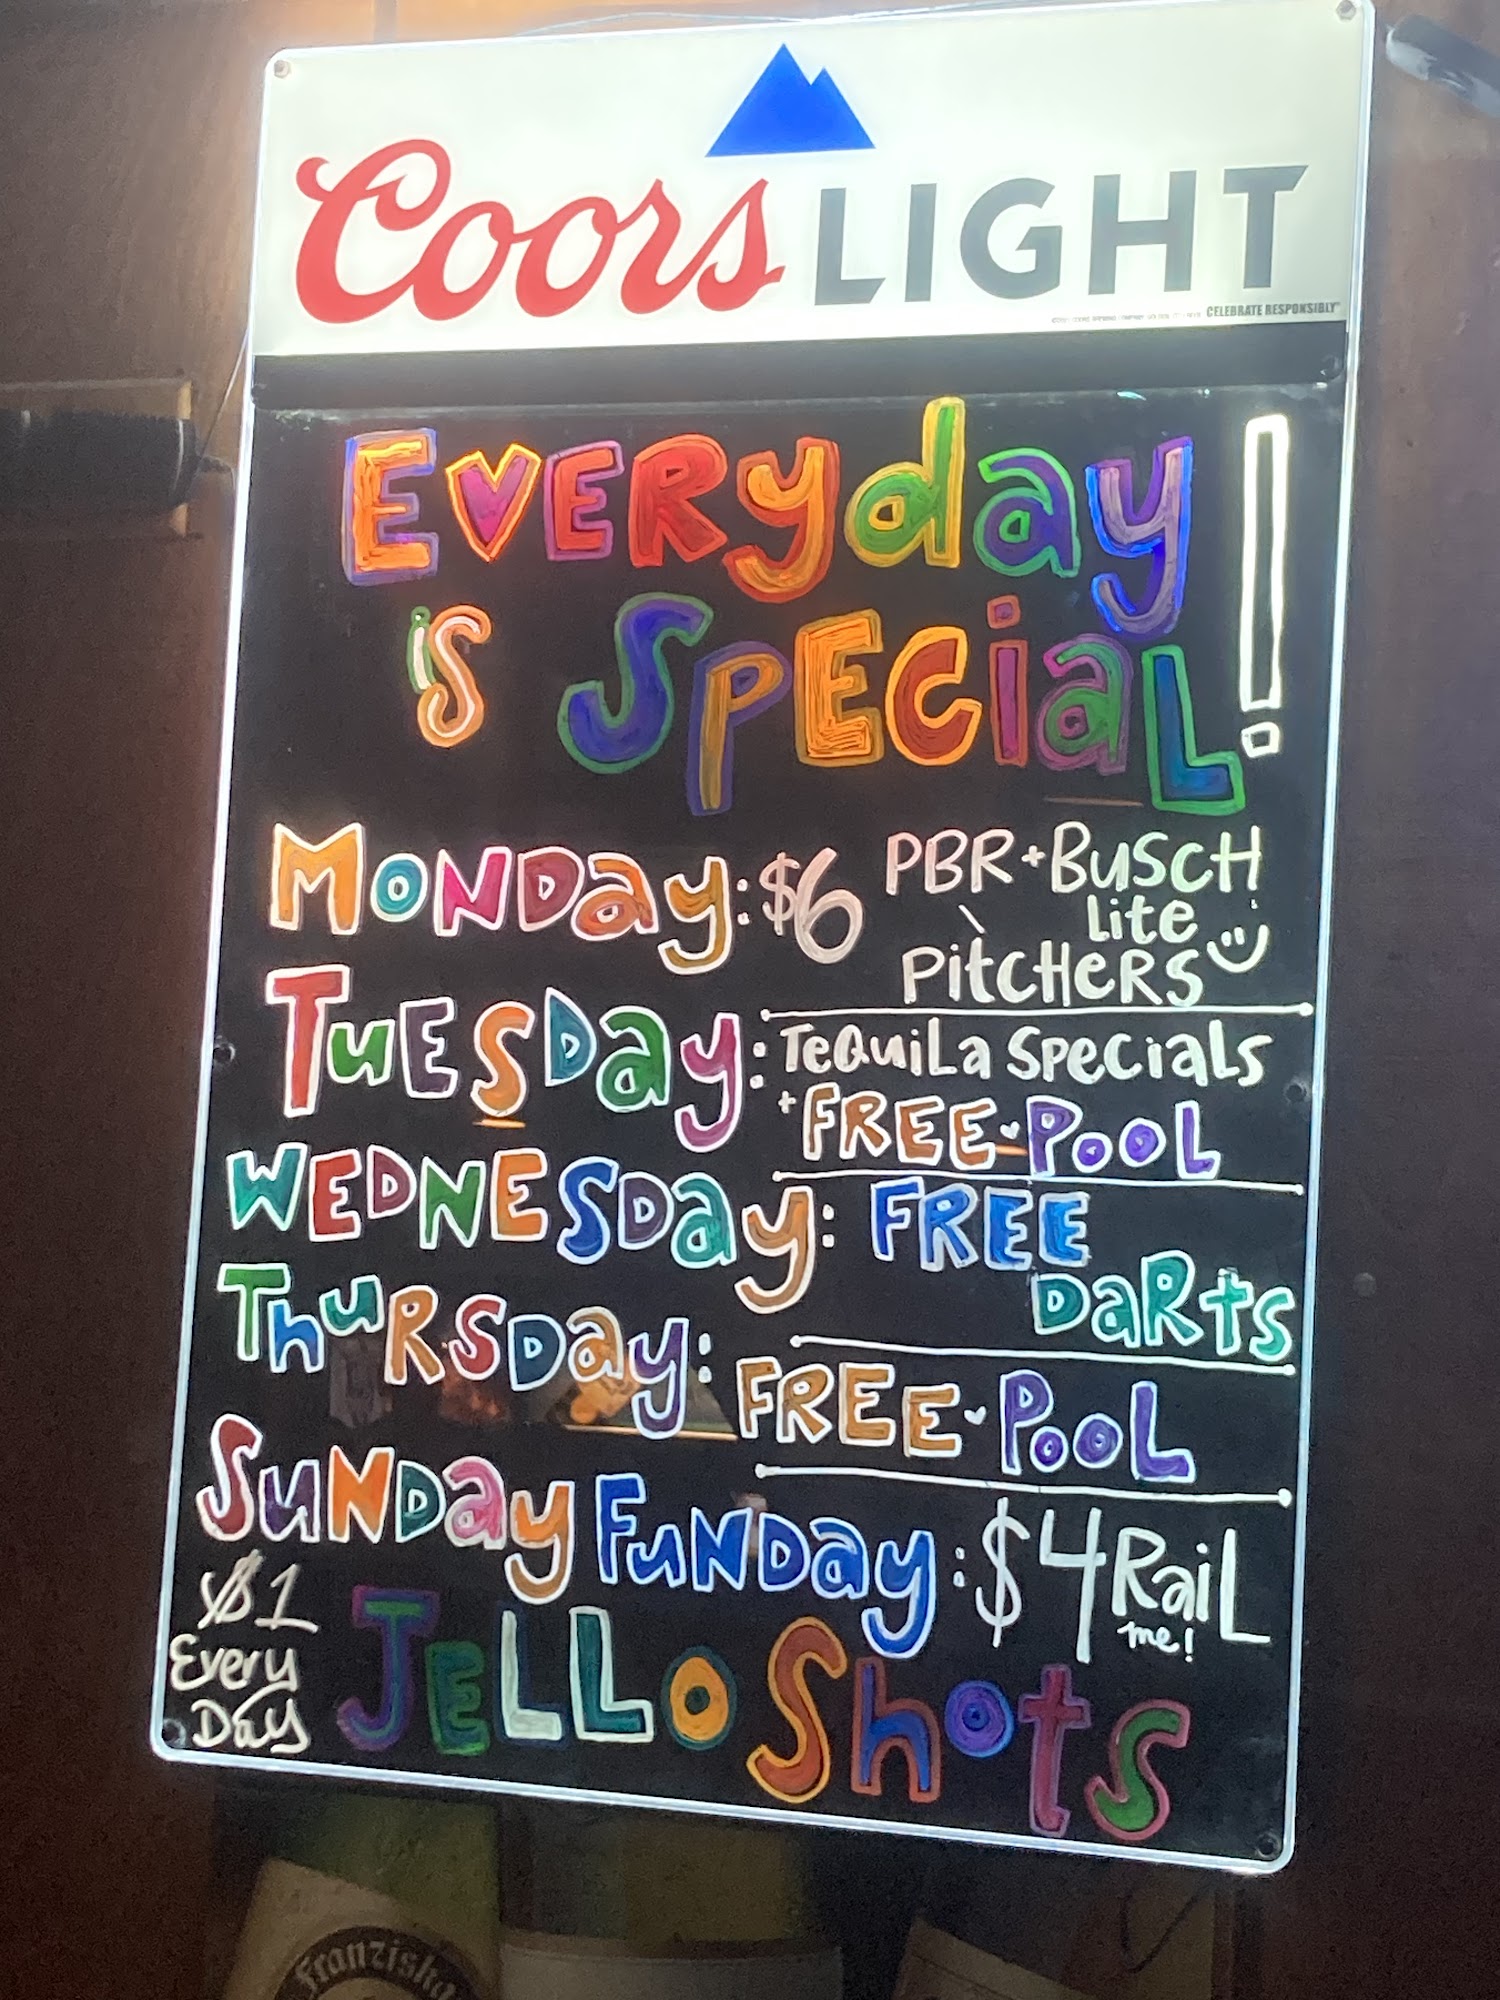 Coors LIGHT
CELEBRATE RESPONSIBLY
EVERYday
is SPECiaL!
MONDay: $6 PBR + BUSCH
Lite
PitCHeRS
TUESDay: TeQuiLa SPeCiaLS
+ FREE POOL
WEDNESDay: FREE
DaRts
ThuRSDay: FREE POOL
SUNDay FUNDay: $4 RaiL
me!
$1
Every
Day
JELLO Shots
Franziska